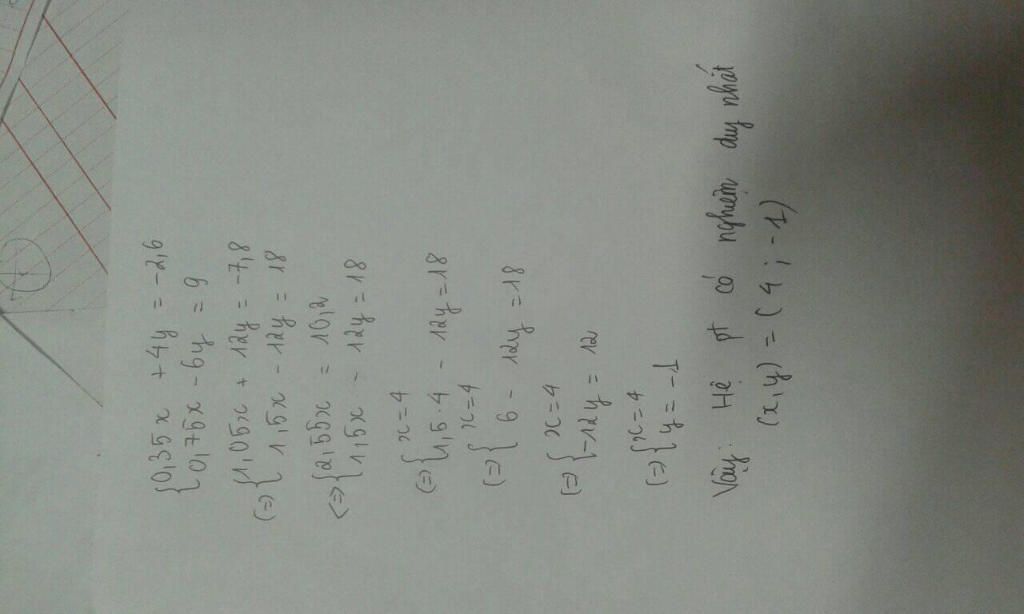 {0,35x + 4y = -2,6
0,75x - 6y = 9
(=) {1,05x + 12y = -7,8
1,5x - 12y = 18
<=> {2,55x = 10,2
1,5x - 12y = 18
(=) {x=4
1,5.4 - 12y = 18
(=) {x=4
6 - 12y = 18
(=) {x=4
-12y = 12
(=) {x=4
y = -1
Vậy: Hệ pt có nghiệm duy nhất
(x,y) = (4 ; -1)